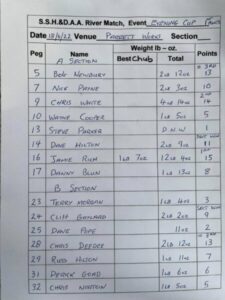 S.S.H.&D.A.A. River Match, Event EVENING CUP
Date 18/6/22 Venue PROJECT WORK Section
Peg Name Weight lb – oz. Points
A SECTION Best Chub Total
5 BOB NEWBURY 2LB 12oz 13
7 NICK PAYNE 2LB 3oz 10
9 CHRIS WHITE 4LB 14oz 14
10 WAYNE COOPER 1LB 5oz 5
13 STEVE PARKER D.N.W 1
14 DAVE HILTON 2LB 9oz 11
16 JAMIE RICH 1LB 7oz 12LB 4oz 15
17 DANNY BLUN 1LB 13oz 8
B SECTION
23 TERRY MORGAN 1LB 4oz 3
24 CLIFF 2LB 2oz 9
25 DAVE POPE 11oz 2
28 CHRIS DEEDEE 2LB 12oz 13
29 RUSS HILTON 1LB 11oz 7
31 DEREK GOAD 1LB 6oz 6
32 CHRIS NEWTON 1LB 5oz 5